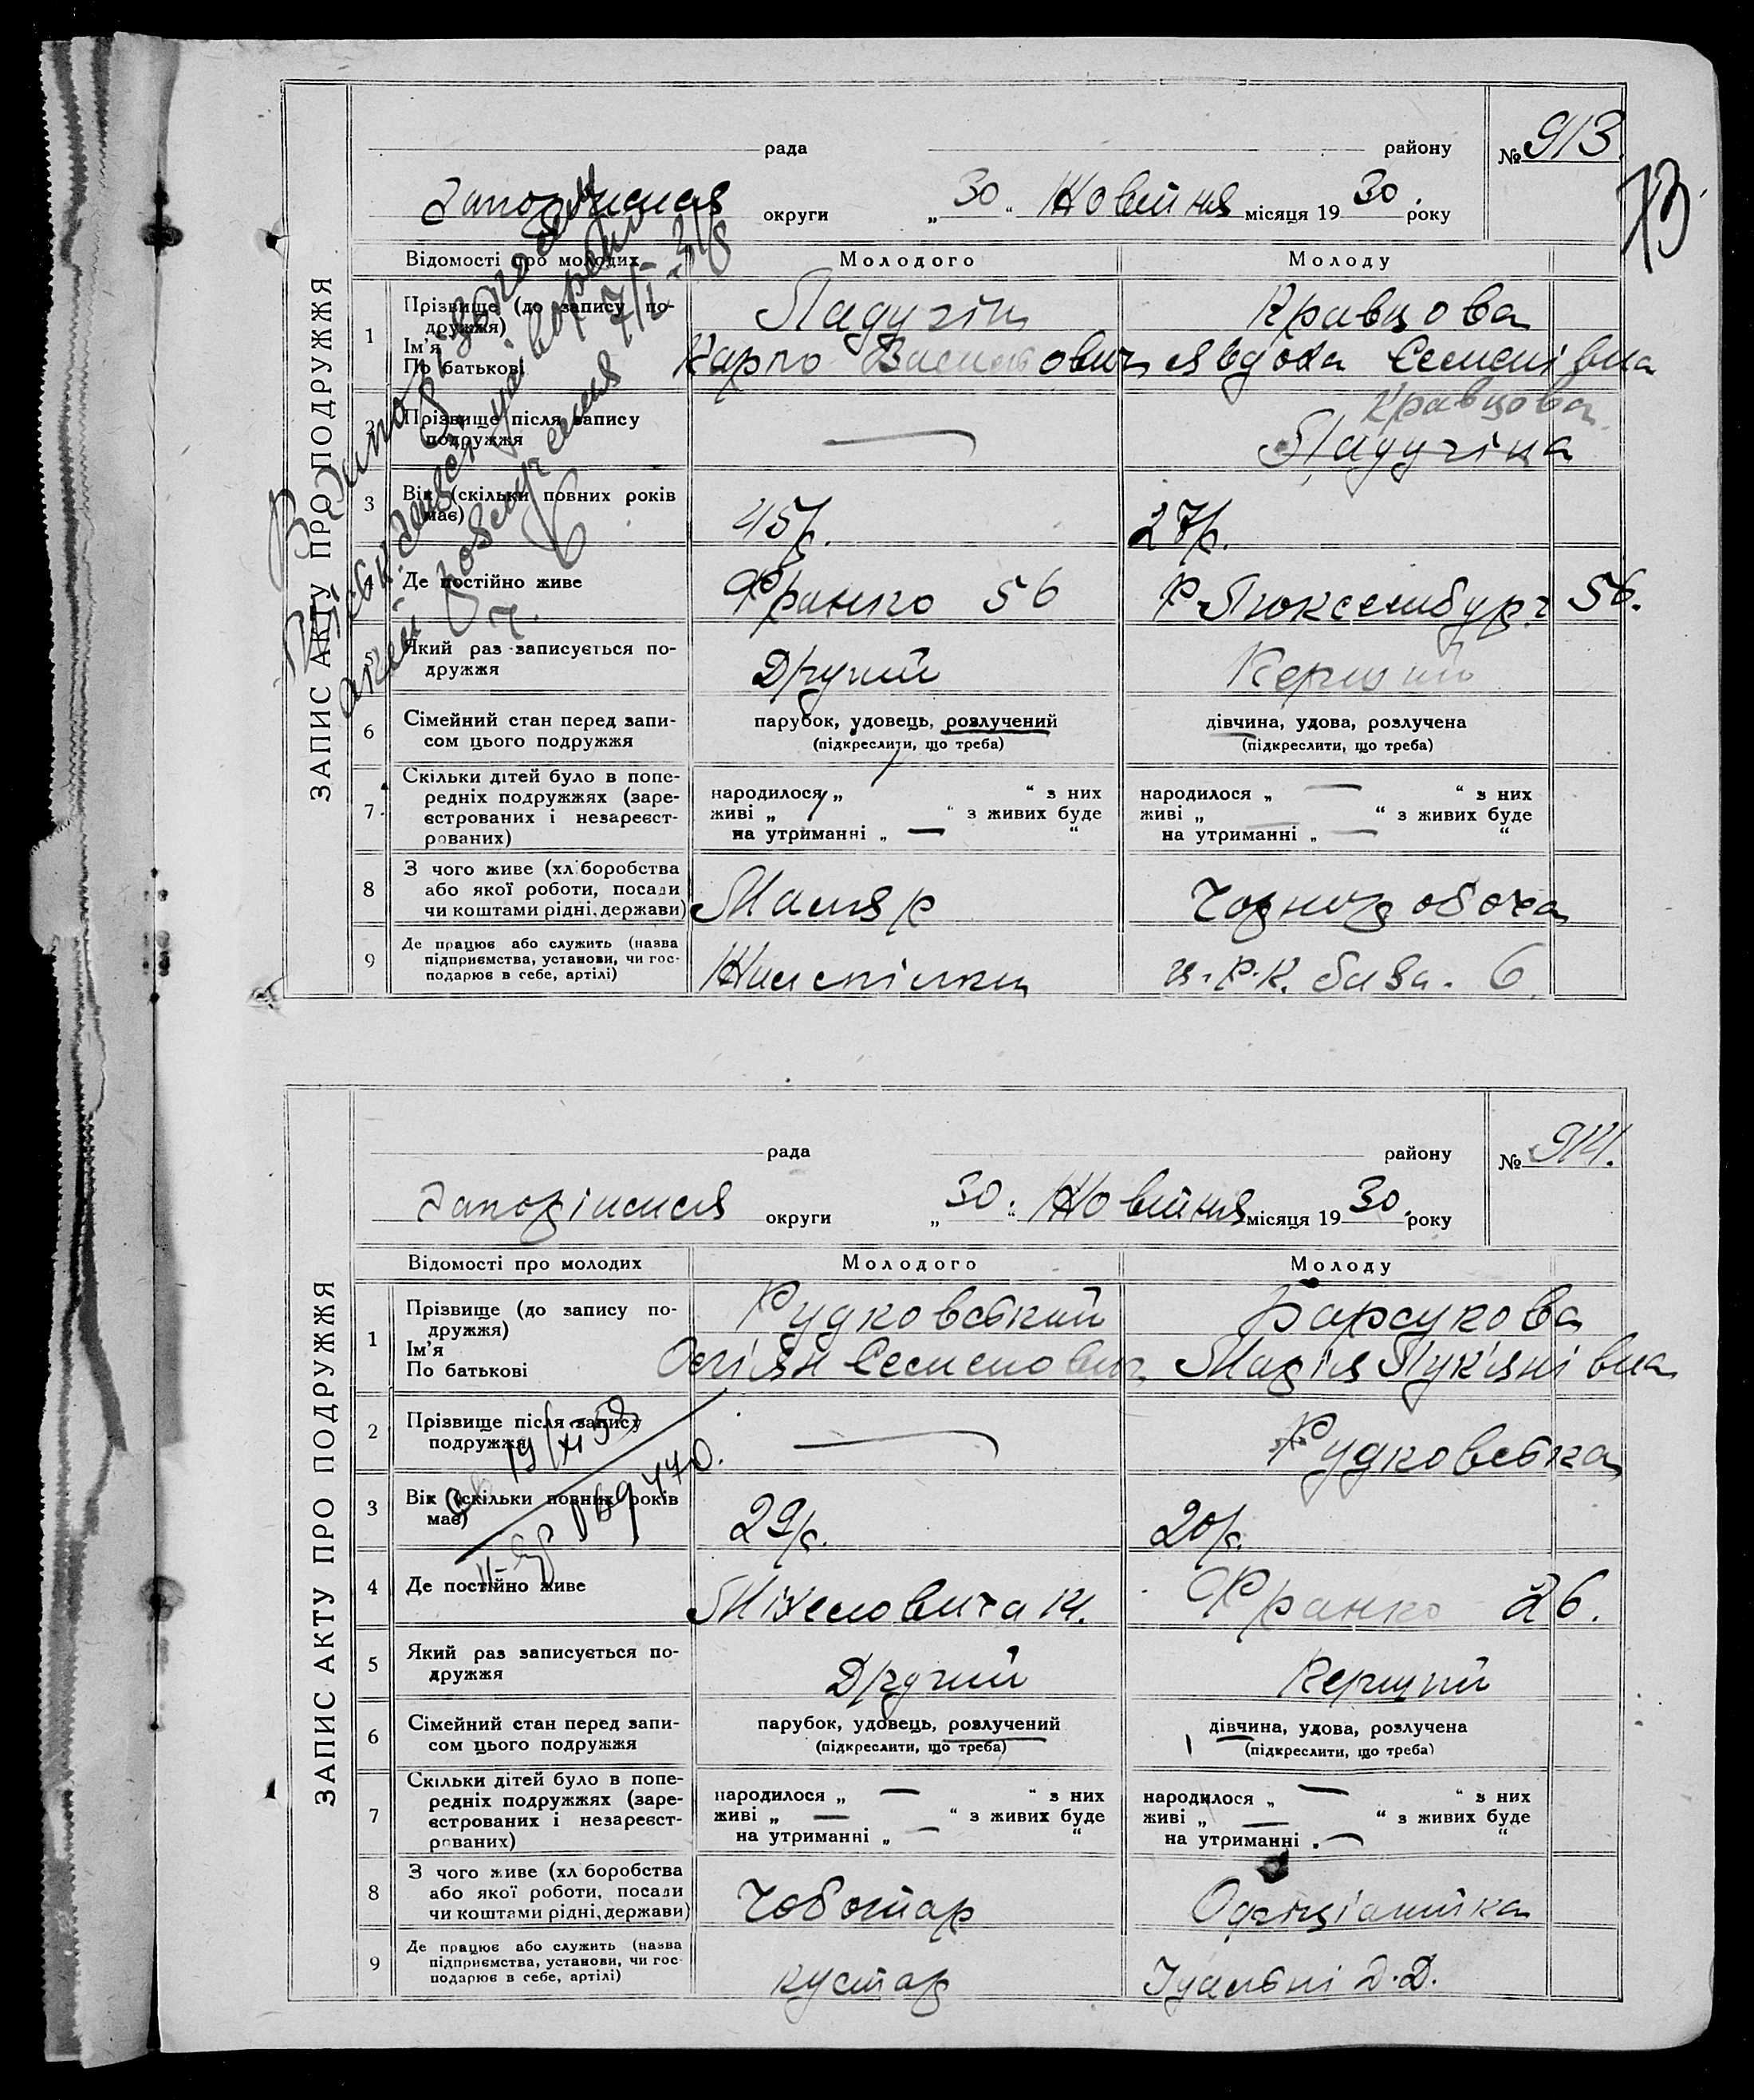 рада району № 913.
73
Запоріжжя округи „30“ Жовтня місяця 1930. року
ЗАПИС АКТУ ПРО ПОДРУЖЖЯ
Відомості про молодих Молодого Молоду
1 Прізвище (до запису подружжя) Ладугін Кравцова
Ім'я
По батькові Карпо Васильович Явдоха Семенівна
2 Прізвище після запису подружжя — Кравцова
Ладугіна
3 Вік (скільки повних років має) 45р. 27р.
4 Де постійно живе Франко 56 Р. Люксембург 56.
5 Який раз записується подружжя Другий Перший
6 Сімейний стан перед записом цього подружжя парубок, удовець, розлучений дівчина, удова, розлучена
(підкреслити, що треба) (підкреслити, що треба)
7 Скільки дітей було в попередніх подружжях (зареєстрованих і незареєстрованих)
народилося „ 1 “ з них народилося „ — “ з них
живі „ “ з живих буде живі „ — “ з живих буде
на утриманні „ — “ на утриманні „ — “
8 З чого живе (хліборобства або якої роботи, посади чи коштами рідні, держави) Маляр Чорнороboча
9 Де працює або служить (назва підприємства, установи, чи господарює в себе, артілі) Жилспілка Ц.Р.К. база. 6
рада району № 914.
Запоріжжя округи „30“ Жовтня місяця 1930. року
ЗАПИС АКТУ ПРО ПОДРУЖЖЯ
Відомості про молодих Молодого Молоду
1 Прізвище (до запису подружжя) Рудковський Барсукова
Ім'я
По батькові Осіян Семенович Марія Лук'янівна
2 Прізвище після запису подружжя — Рудковська
19/XI 59
069470.
3 Вік (скільки повних років має) 29р. 20р.
4 Де постійно живе Міхеловича 14. Франко 26.
5 Який раз записується подружжя Другий Перший
6 Сімейний стан перед записом цього подружжя парубок, удовець, розлучений дівчина, удова, розлучена
(підкреслити, що треба) (підкреслити, що треба)
7 Скільки дітей було в попередніх подружжях (зареєстрованих і незареєстрованих)
народилося „ — “ з них народилося „ — “ з них
живі „ — “ з живих буде живі „ — “ з живих буде
на утриманні „ — “ на утриманні „ — “
8 З чого живе (хліборобства або якої роботи, посади чи коштами рідні, держави) Чоботар Офіціантка
9 Де працює або служить (назва підприємства, установи, чи господарює в себе, артілі) кустар Їдальні Д.Д.